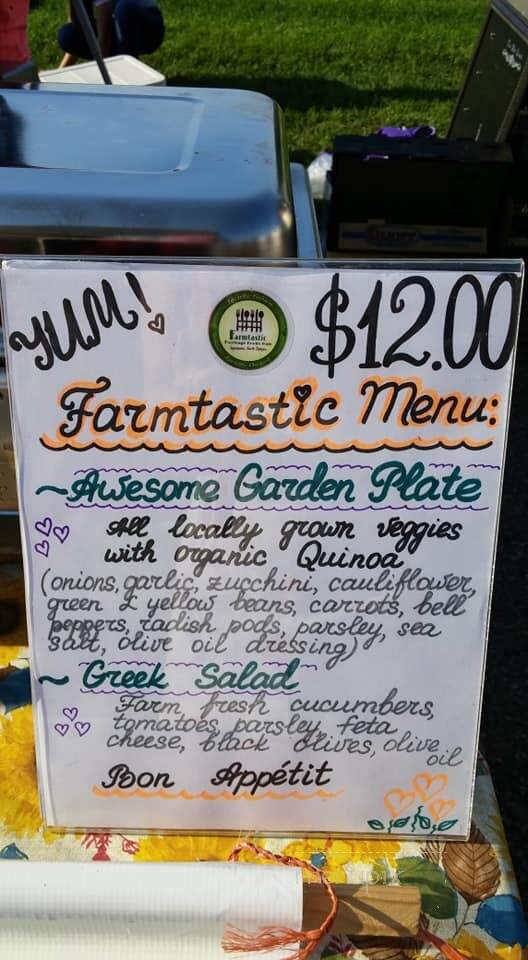 YUM!
Farmtastic
$12.00
Farmtastic Menu:
~Awesome Garden Plate
All locally grown veggies
with organic Quinoa
(onions, garlic, zucchini, cauliflower,
green & yellow beans, carrots, bell
peppers, radish pods, parsley, sea
salt, olive oil dressing)
~ Greek Salad
Farm fresh cucumbers,
tomatoes, parsley, feta
cheese, black olives, olive
oil
Bon Appétit